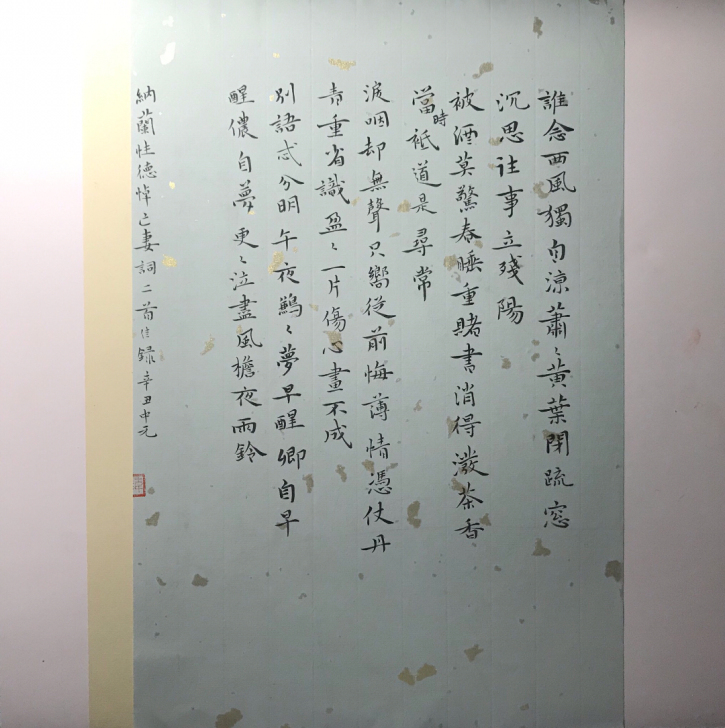 誰念西風獨自涼蕭〻黃葉閉疏窓
沉思往事立殘陽
被酒莫驚春睡重賭書消得潑茶香
當時祇道是尋常
淚咽却無聲只嚮從前悔薄情憑仗丹
青重省識盈〻一片傷心畫不成
別語忒分明午夜鶼〻夢早醒卿自早
醒儂自夢更〻泣盡風檐夜雨鈴
納蘭性德悼亡妻詞二首 錄辛丑中元